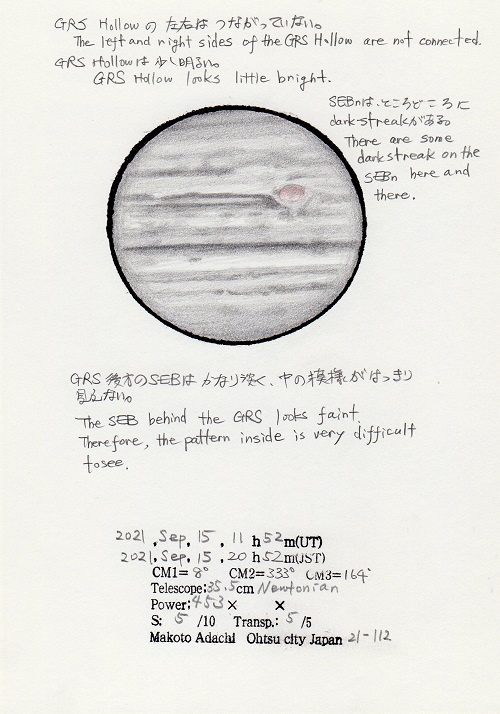 GRS Hollow の 左右は つながっていない。
The left and right sides of the GRS Hollow are not connected.
GRS Hollowは 少し明るい。
GRS Hollow looks little bright.
SEBnは、ところどころに
dark streakがある。
There are some
dark streak on the
SEBn here and
there.
GRS 後方のSEBは かなり淡く、中の模様がはっきり
見えない。
The SEB behind the GRS looks faint.
Therefore, the pattern inside is very difficult
to see.
2021, Sep. 15, 11 h 52 m(UT)
2021, Sep. 15, 20 h 52 m(JST)
CM1= 8° CM2= 333° CM3= 164°
Telescope: 35.5cm Newtonian
Power: 453 × ×
S: 5 /10 Transp.: 5 /5
Makoto Adachi Ohtsu city Japan 21-112